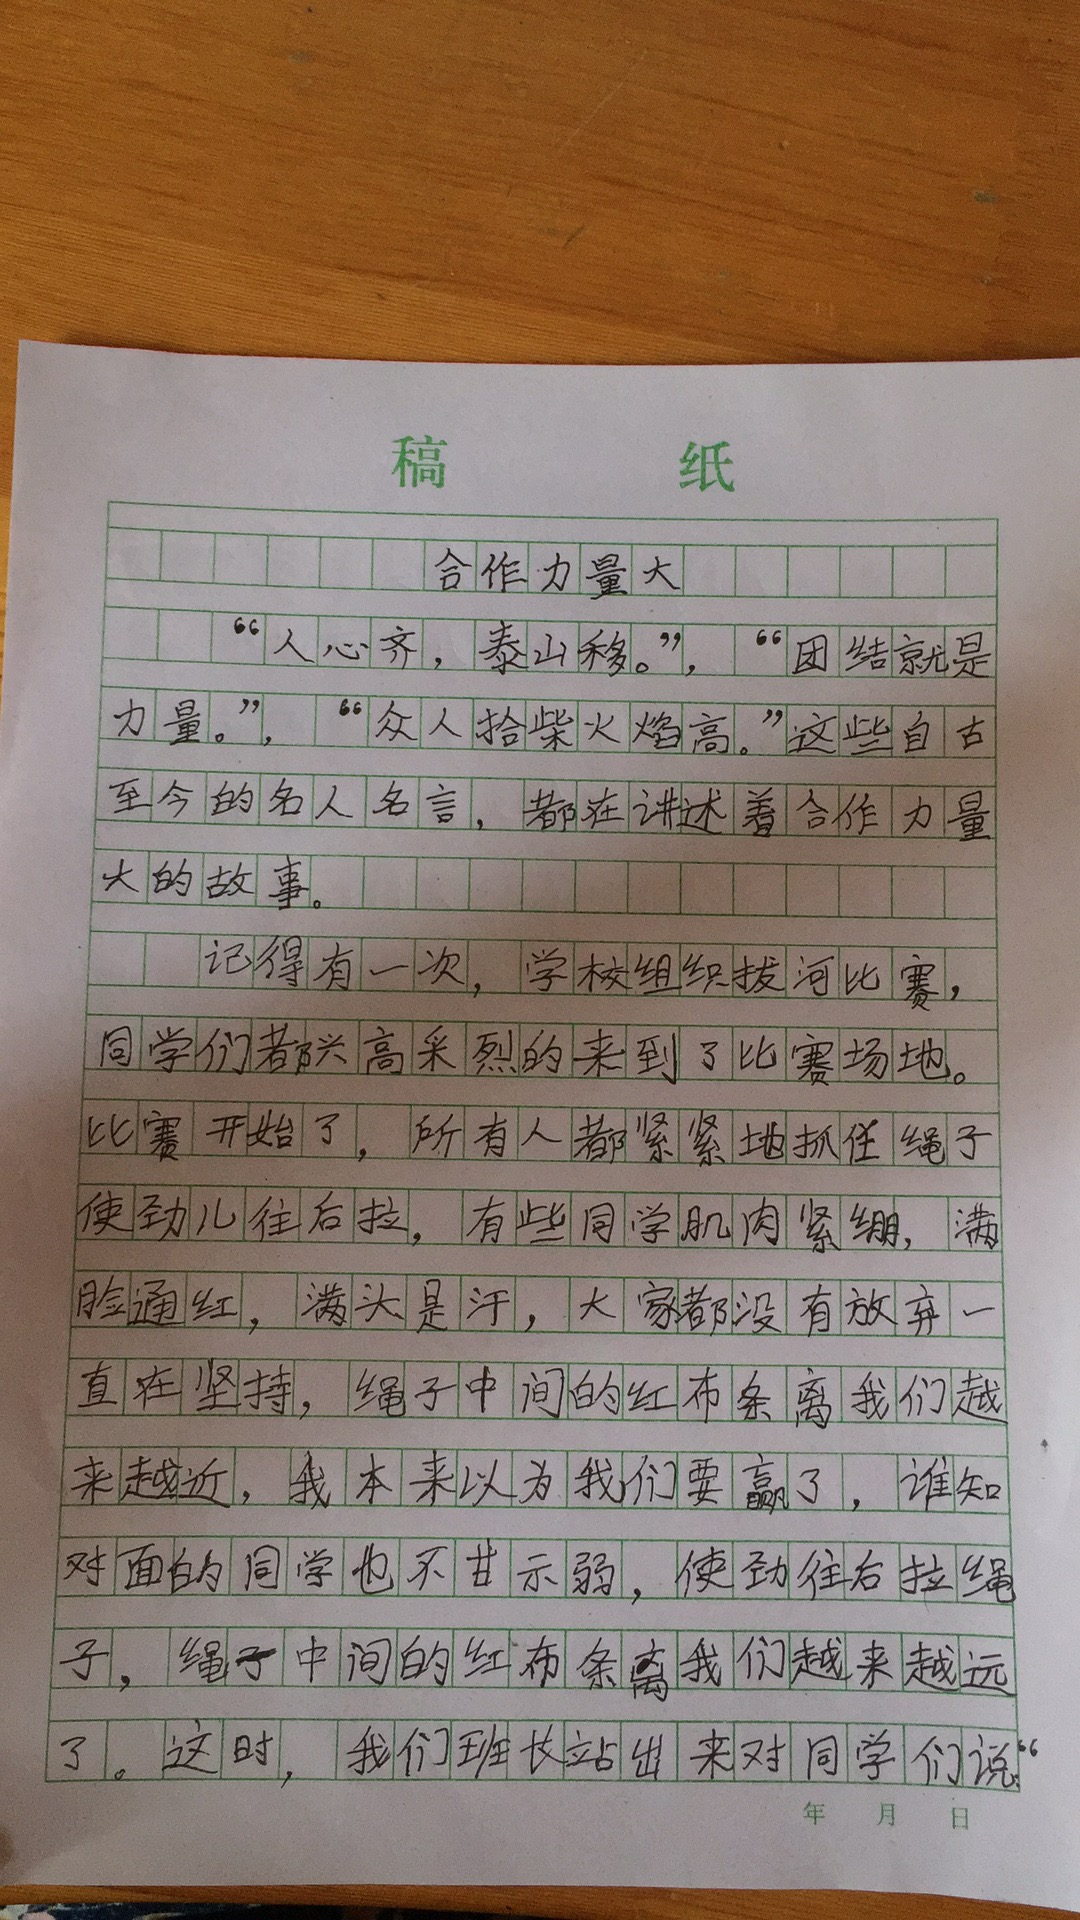 稿 纸
合作力量大
“人心齐，泰山移。”，“团结就是
力量。”，“众人拾柴火焰高。”这些自古
至今的名人名言，都在讲述着合作力量
大的故事。
记得有一次，学校组织拔河比赛，
同学们都兴高采烈的来到了比赛场地。
比赛开始了，所有人都紧紧地抓住绳子
使劲儿往后拉，有些同学肌肉紧绷，满
脸通红，满头是汗，大家都没有放弃一
直在坚持，绳子中间的红布条离我们越
来越近，我本来以为我们要赢了，谁知
对面的同学也不甘示弱，使劲往后拉绳
子，绳子中间的红布条离我们越来越远
了。这时，我们班长站出来对同学们说：“
年 月 日